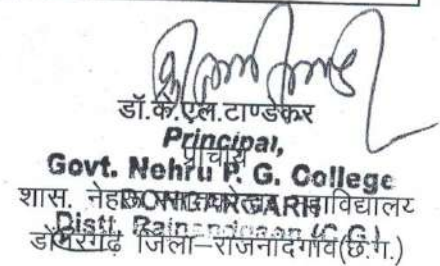 डॉ.के.एल.टाण्डेकर
Principal,
प्राचार्य
Govt. Nehru P. G. College
शास. नेहरू महाविद्यालय
DONGARGARH
Distt. Rajnandgaon (C.G.)
डोंगरगढ़ जिला–राजनांदगांव(छ.ग.)